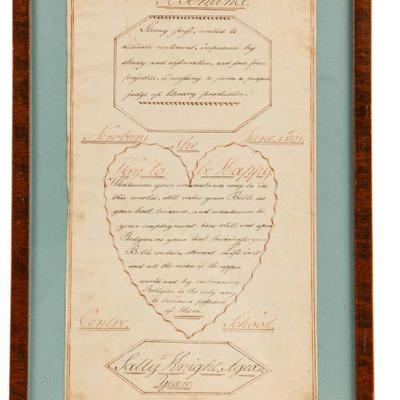 A Sentence
Strong sense, united to
delicate sentiment, improved by
study and observation, and free from
prejudice, is necessary to form a proper
judge of literary production.
Newbury The June 1801
Way to be Happy
Whatsoever your circumstances may be in
this world, still value your Bible as
your best treasure, and whatsoever be
your employment here still rest upon
Religion as your best business, your
Bible contains eternal Life in it
and all the riches of the upper
world and by embracing
Religion is the only way
to become a possessor
of them.
Centre School
Sally Knight, Aged
Years